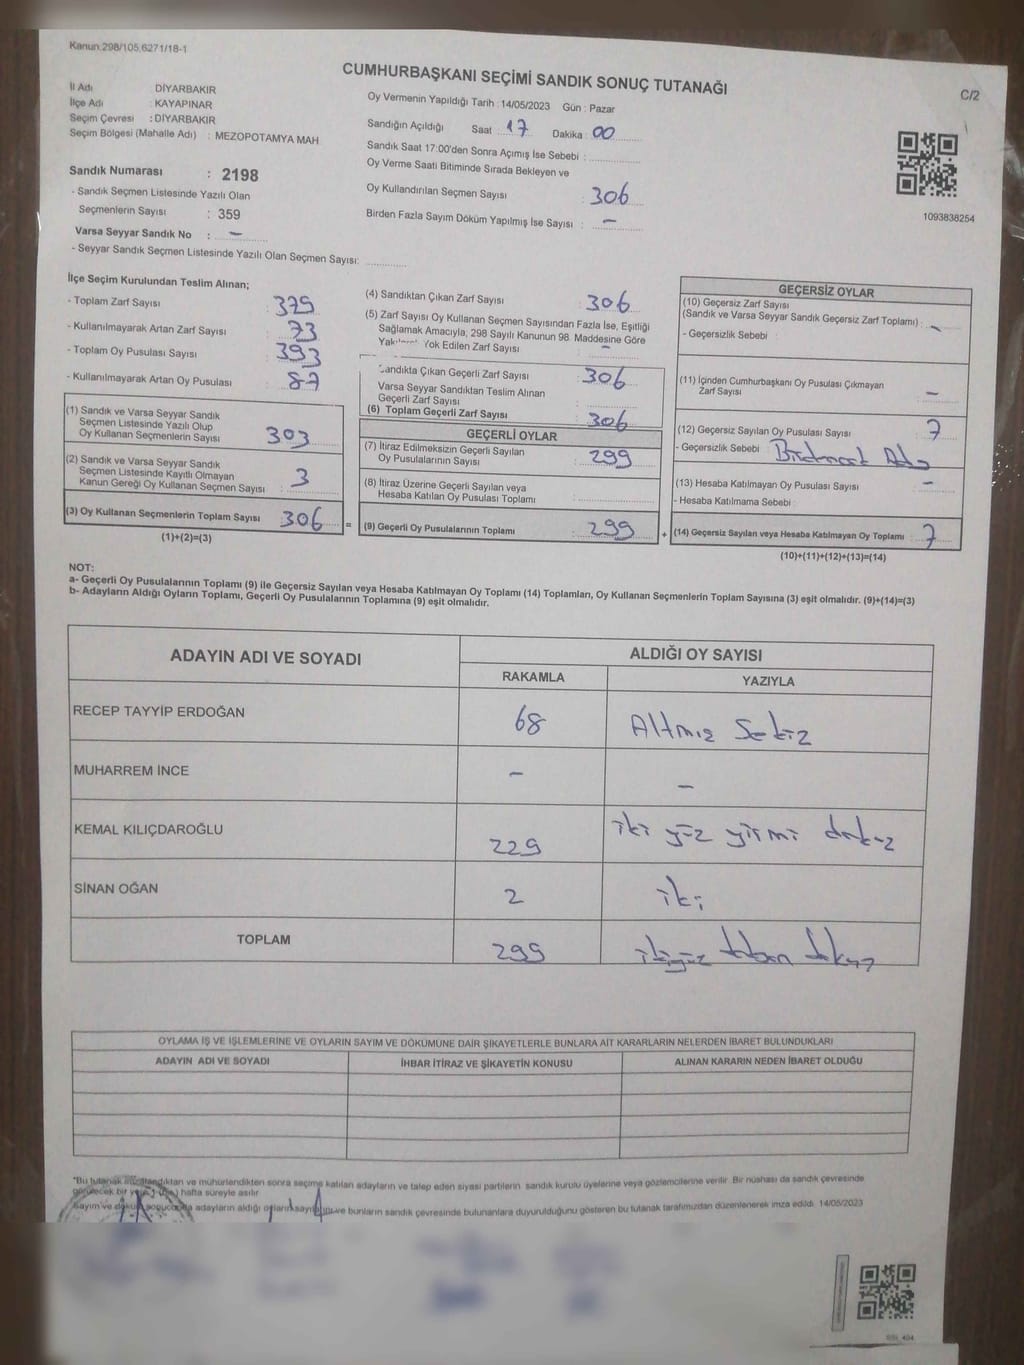 Kanun.298/105,6271/18-1
CUMHURBAŞKANI SEÇİMİ SANDIK SONUÇ TUTANAĞI
C/2
İl Adı DİYARBAKIR
İlçe Adı : KAYAPINAR
Seçim Çevresi : DİYARBAKIR
Seçim Bölgesi (Mahalle Adı) : MEZOPOTAMYA MAH
Sandık Numarası : 2198
- Sandık Seçmen Listesinde Yazılı Olan
Seçmenlerin Sayısı : 359
Varsa Seyyar Sandık No : -
- Seyyar Sandık Seçmen Listesinde Yazılı Olan Seçmen Sayısı:
Oy Vermenin Yapıldığı Tarih : 14/05/2023 Gün : Pazar
Sandığın Açıldığı Saat 17 Dakika : 00
Sandık Saat 17:00'den Sonra Açımış İse Sebebi :
Oy Verme Saati Bitiminde Sırada Bekleyen ve
Oy Kullandırılan Seçmen Sayısı : 306
Birden Fazla Sayım Döküm Yapılmış İse Sayısı : -
1093838254
İlçe Seçim Kurulundan Teslim Alınan;
- Toplam Zarf Sayısı : 379
- Kullanılmayarak Artan Zarf Sayısı : 73
- Toplam Oy Pusulası Sayısı : 393
- Kullanılmayarak Artan Oy Pusulası : 87
(1) Sandık ve Varsa Seyyar Sandık
Seçmen Listesinde Yazılı Olup
Oy Kullanan Seçmenlerin Sayısı 303
(2) Sandık ve Varsa Seyyar Sandık
Seçmen Listesinde Kayıtlı Olmayan
Kanun Gereği Oy Kullanan Seçmen Sayısı 3
(3) Oy Kullanan Seçmenlerin Toplam Sayısı 306
(1)+(2)=(3)
=
(4) Sandıktan Çıkan Zarf Sayısı : 306
(5) Zarf Sayısı Oy Kullanan Seçmen Sayısından Fazla İse, Eşitliği
Sağlamak Amacıyla, 298 Sayılı Kanunun 98. Maddesine Göre
Yok Edilen Zarf Sayısı : -
Sandıkta Çıkan Geçerli Zarf Sayısı : 306
Varsa Seyyar Sandıktan Teslim Alınan
Geçerli Zarf Sayısı
(6) Toplam Geçerli Zarf Sayısı : 306
GEÇERLİ OYLAR
(7) İtiraz Edilmeksizin Geçerli Sayılan
Oy Pusulalarının Sayısı 299
(8) İtiraz Üzerine Geçerli Sayılan veya
Hesaba Katılan Oy Pusulası Toplamı
(9) Geçerli Oy Pusulalarının Toplamı 299
+
GEÇERSİZ OYLAR
(10) Geçersiz Zarf Sayısı
(Sandık ve Varsa Seyyar Sandık Geçersiz Zarf Toplamı) : -
- Geçersizlik Sebebi
(11) İçinden Cumhurbaşkanı Oy Pusulası Çıkmayan
Zarf Sayısı -
(12) Geçersiz Sayılan Oy Pusulası Sayısı : 7
- Geçersizlik Sebebi
(13) Hesaba Katılmayan Oy Pusulası Sayısı -
- Hesaba Katılmama Sebebi
(14) Geçersiz Sayılan veya Hesaba Katılmayan Oy Toplamı : 7
(10)+(11)+(12)+(13)=(14)
NOT:
a- Geçerli Oy Pusulalarının Toplamı (9) ile Geçersiz Sayılan veya Hesaba Katılmayan Oy Toplamı (14) Toplamları, Oy Kullanan Seçmenlerin Toplam Sayısına (3) eşit olmalıdır. (9)+(14)=(3)
b- Adayların Aldığı Oyların Toplamı, Geçerli Oy Pusulalarının Toplamına (9) eşit olmalıdır.
ADAYIN ADI VE SOYADI
ALDIĞI OY SAYISI
RAKAMLA YAZIYLA
RECEP TAYYİP ERDOĞAN 68 Altmış Sekiz
MUHARREM İNCE - -
KEMAL KILIÇDAROĞLU 229 iki yüz yirmi dokuz
SİNAN OĞAN 2 iki
TOPLAM 299 ikiyüz doksan dokuz
OYLAMA İŞ VE İŞLEMLERİNE VE OYLARIN SAYIM VE DÖKÜMÜNE DAİR ŞİKAYETLERLE BUNLARA AİT KARARLARIN NELERDEN İBARET BULUNDUKLARI
ADAYIN ADI VE SOYADI İHBAR İTİRAZ VE ŞİKAYETİN KONUSU ALINAN KARARIN NEDEN İBARET OLDUĞU
*Bu tutanak imzalandıktan ve mühürlendikten sonra seçime katılan adayların ve talep eden siyasi partilerin sandık kurulu üyelerine veya gözlemcilerine verilir. Bir nüshası da sandık çevresinde
görülecek bir yere hafta süreyle asılır
Sayım ve döküm sonucunda adayların aldığı oyların sayısını ve bunların sandık çevresinde bulunanlara duyurulduğunu gösteren bu tutanak tarafımızdan düzenlenerek imza edildi. 14/05/2023